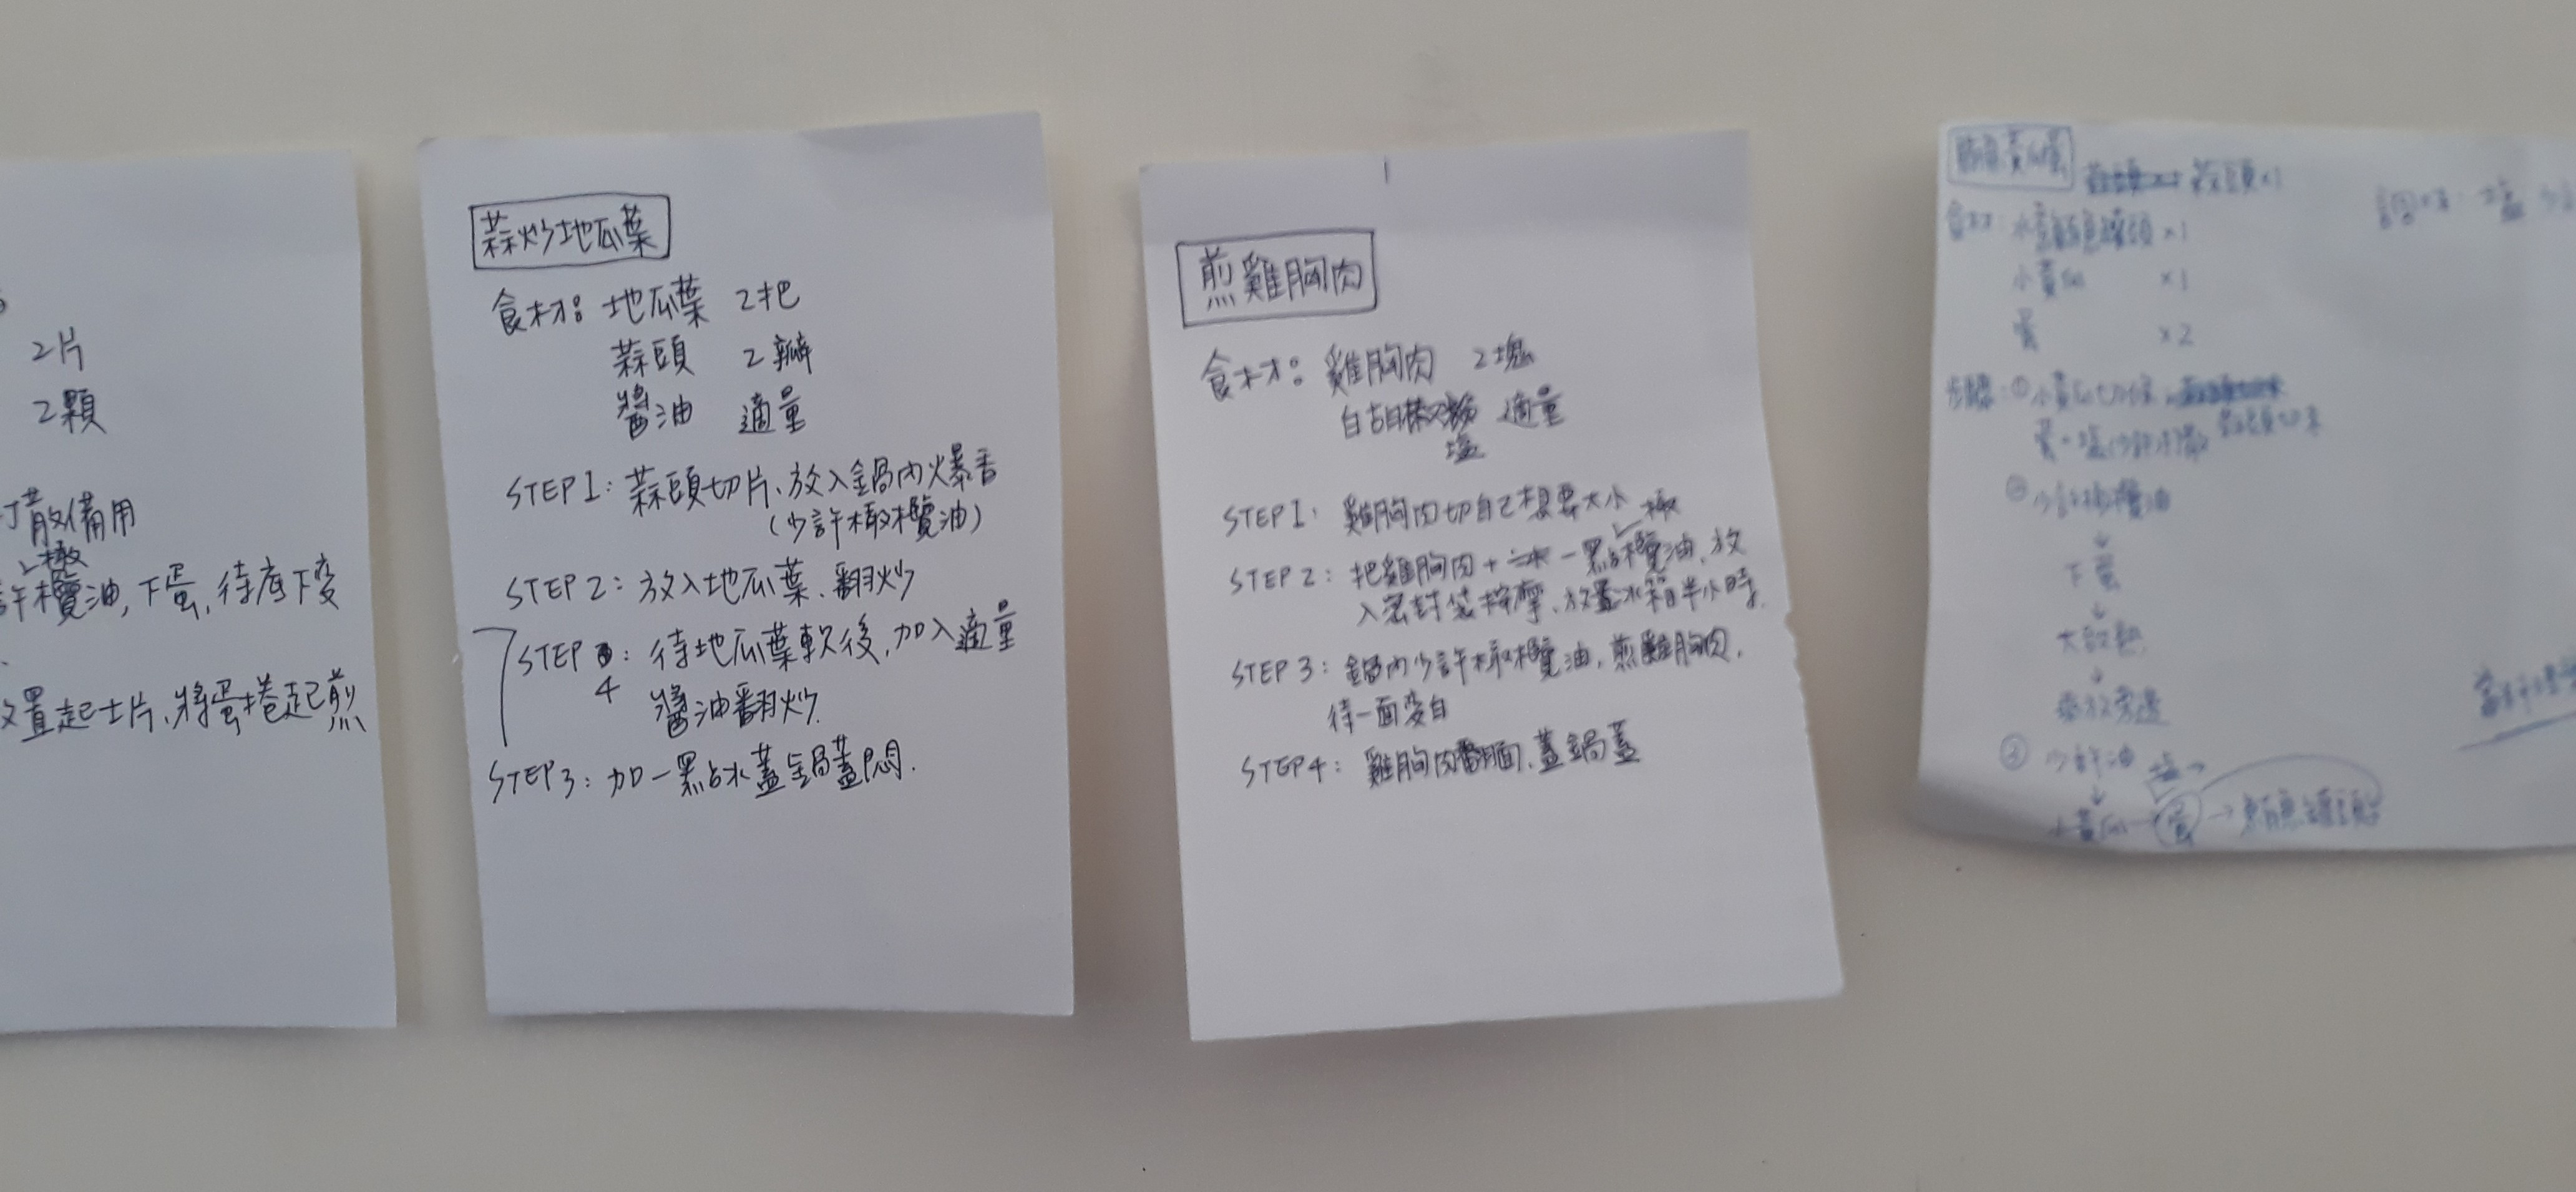 2片
2顆
打散備用
橄
許欖油,下蛋,待底下変
放置起士片,將蛋捲起煎
蒜炒地瓜葉
食材: 地瓜葉 2把
蒜頭 2瓣
醬油 適量
STEP1: 蒜頭切片、放入鍋內爆香
(少許橄欖油)
STEP2: 放入地瓜葉、翻炒
STEP 4: 待地瓜葉軟後,加入適量
醬油翻炒.
STEP3: 加一點水蓋鍋蓋悶.
煎雞胸肉
食材: 雞胸肉 2塊
白胡椒 適量
塩
STEP1: 雞胸肉切自己想要大小
橄
STEP2: 把雞胸肉+一點欖油、放
入密封袋按摩、放置冰箱半小時.
STEP3: 鍋內少許橄欖油,煎雞胸肉,
待一面变白
STEP4: 雞胸肉翻面、蓋鍋蓋
蒜頭×1
食材: 水煮鮪魚罐頭 ×1
小黃瓜 ×1
蛋 ×2
調味: 塩 少
步驟: ①小黃瓜切
蛋+塩少許打散 蒜頭切末
②少許橄欖油
↓
下蛋
↓
↓
③少許油 塩
↓
小黃瓜 → 蛋 → 鮪魚罐頭